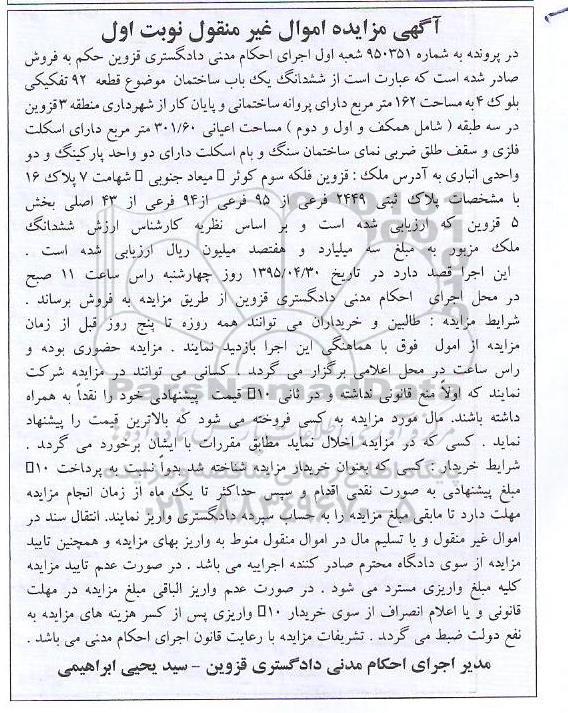 آگهی مزایده اموال غیر منقول نوبت اول
در پرونده به شماره ۹۵۰۳۵۱ شعبه اول اجرای احکام مدنی دادگستری قزوین حکم به فروش
صادر شده است که عبارت است از ششدانگ یک باب ساختمان موضوع قطعه ۹۲ تفکیکی
بلوک ۴ به مساحت ۱۶۲ متر مربع دارای پروانه ساختمانی و پایان کار از شهرداری منطقه ۳ قزوین
در سه طبقه ( شامل همکف و اول و دوم ) مساحت اعیانی ۳۰۱/۶۰ متر مربع دارای اسکلت
فلزی و سقف طلق ضربی نمای ساختمان سنگ و بام اسکلت دارای دو واحد پارکینگ و دو
واحدی انباری به آدرس ملک : قزوین فلکه سوم کوثر میعاد جنوبی شهامت ۷ پلاک ۱۶
با مشخصات پلاک ثبتی ۲۴۴۹ فرعی از ۹۵ فرعی از۹۴ فرعی از ۴۳ اصلی بخش
۵ قزوین که ارزیابی شده است و بر اساس نظریه کارشناس ارزش ششدانگ
ملک مزبور به مبلغ سه میلیارد و هفتصد میلیون ریال ارزیابی شده است .
این اجرا قصد دارد در تاریخ ۱۳۹۵/۰۴/۳۰ روز چهارشنبه راس ساعت ۱۱ صبح
در محل اجرای احکام مدنی دادگستری قزوین از طریق مزایده به فروش برساند .
شرایط مزایده : طالبین و خریداران می توانند همه روزه تا پنج روز قبل از زمان
مزایده از امول فوق با هماهنگی این اجرا بازدید نمایند . مزایده حضوری بوده و
راس ساعت در محل اعلامی برگزار می گردد . کسانی می توانند در مزایده شرکت
نمایند که اولاً منع قانونی نداشته و در ثانی ۱۰ قیمت پیشنهادی خود را نقداً به همراه
داشته باشند. مال مورد مزایده به کسی فروخته می شود که بالاترین قیمت را پیشنهاد
نماید . کسی که در مزایده اخلال نماید مطابق مقررات با ایشان برخورد می گردد .
شرایط خریدار : کسی که بعنوان خریدار مزایده شناخته شد بدوا نسبت به پرداخت ۱۰
مبلغ پیشنهادی به صورت نقدی اقدام و سپس حداکثر تا یک ماه از زمان انجام مزایده
مهلت دارد تا مابقی مبلغ مزایده را به حساب سپرده دادگستری واریز نمایند. انتقال سند در
اموال غیر منقول و یا تسلیم مال در اموال منقول منوط به واریز بهای مزایده و همچنین تایید
مزایده از سوی دادگاه محترم صادر کننده اجراییه می باشد . در صورت عدم تایید مزایده
کلیه مبلغ واریزی مسترد می شود . در صورت عدم واریز الباقی مبلغ مزایده در مهلت
قانونی و یا اعلام انصراف از سوی خریدار ۱۰ واریزی پس از کسر هزینه های مزایده به
نفع دولت ضبط می گردد . تشریفات مزایده با رعایت قانون اجرای احکام مدنی می باشد .
مدیر اجرای احکام مدنی دادگستری قزوین - سید یحیی ابراهیمی
ParsNamadData